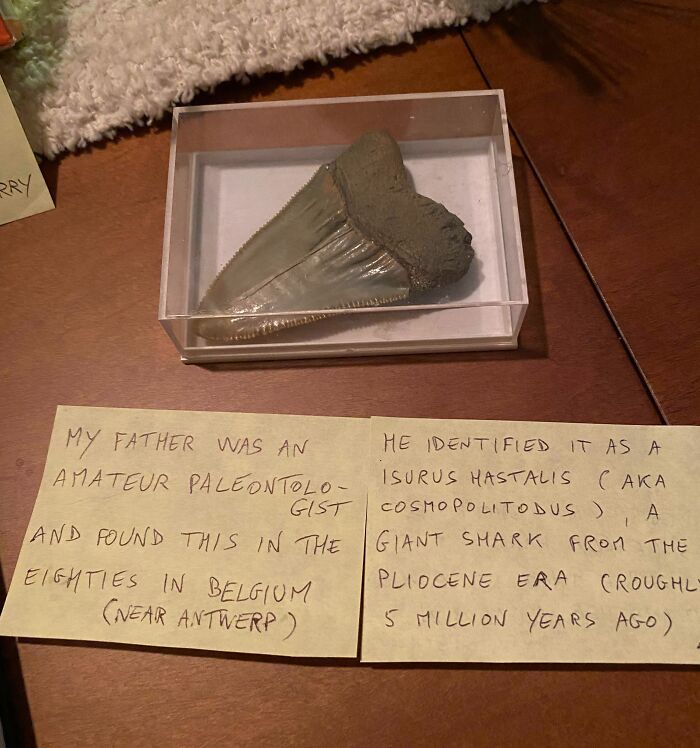 RRY
MY FATHER WAS AN
AMATEUR PALEONTOLO-
GIST
AND FOUND THIS IN THE
EIGHTIES IN BELGIUM
(NEAR ANTWERP)
HE IDENTIFIED IT AS A
ISURUS HASTALIS (AKA
COSMOPOLITODUS), A
GIANT SHARK FROM THE
PLIOCENE ERA (ROUGHLY
5 MILLION YEARS AGO)